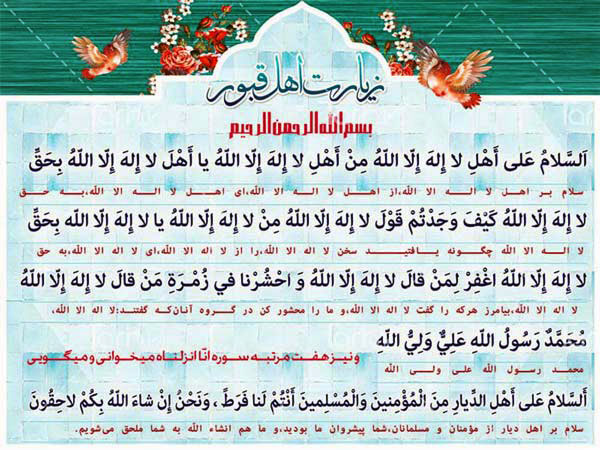 زیارت اهل قبور
بسم الله الرحمن الرحیم
اَلسَّلامُ عَلی أَهْلِ لا إلهَ إِلَّا اللّهُ مِنْ أَهْلِ لا إلهَ إِلَّا اللّهُ یا أَهْلَ لا إلهَ إِلَّا اللّهُ بِحَقِّ
سلام بر اهل لا اله الا الله،از اهل لا اله الا الله،ای اهل لا اله الا الله،به حق
لا إلهَ إِلَّا اللّهُ کَیْفَ وَجَدْتُمْ قَوْلَ لا إلهَ إِلَّا اللّهُ مِنْ لا إلهَ إِلَّا اللّهُ یا لا إلهَ إِلَّا اللّه بِحَقِّ
لا اله الا الله چگونه یافتید سخن لا اله الا الله،را از لا اله الا الله،ای لا اله الا الله،به حق
لا إلهَ إِلَّا اللّهُ اغْفِرْ لِمَنْ قالَ لا إلهَ إِلَّا اللّهُ وَ احْشُرْنا في زُمْـرَةِ مَنْ قالَ لا إلهَ إِلَّا اللّهُ
لا اله الا الله،بیامرز هرکه را گفت لا اله الا الله،و ما را محشور کن در گروه آنان‌که گفتند:لا اله الا الله،
مُحَمَّدٌ رَسُولُ اللّهِ عَلِيٌّ وَلِيُّ اللّهِ
ونیز هفت مرتبه سوره انّا انزلناه میخوانی و میگویی
محمد رسول الله علی ولی الله
أَلسَّلامُ عَلی أَهْلِ الدِّیارِ مِنَ الْمُؤْمِنینَ وَالْمُسْلِمینَ أَنْتُمْ لَنا فَرَطٌ ، وَنَحْنُ إِنْ شاءَ اللّهُ بِکُمْ لاحِقُونَ
سلام بر اهل دیار از مؤمنان و مسلمانان،شما پیشروان ما بودید،و ما هم انشاء الله به شما ملحق می‌شویم.